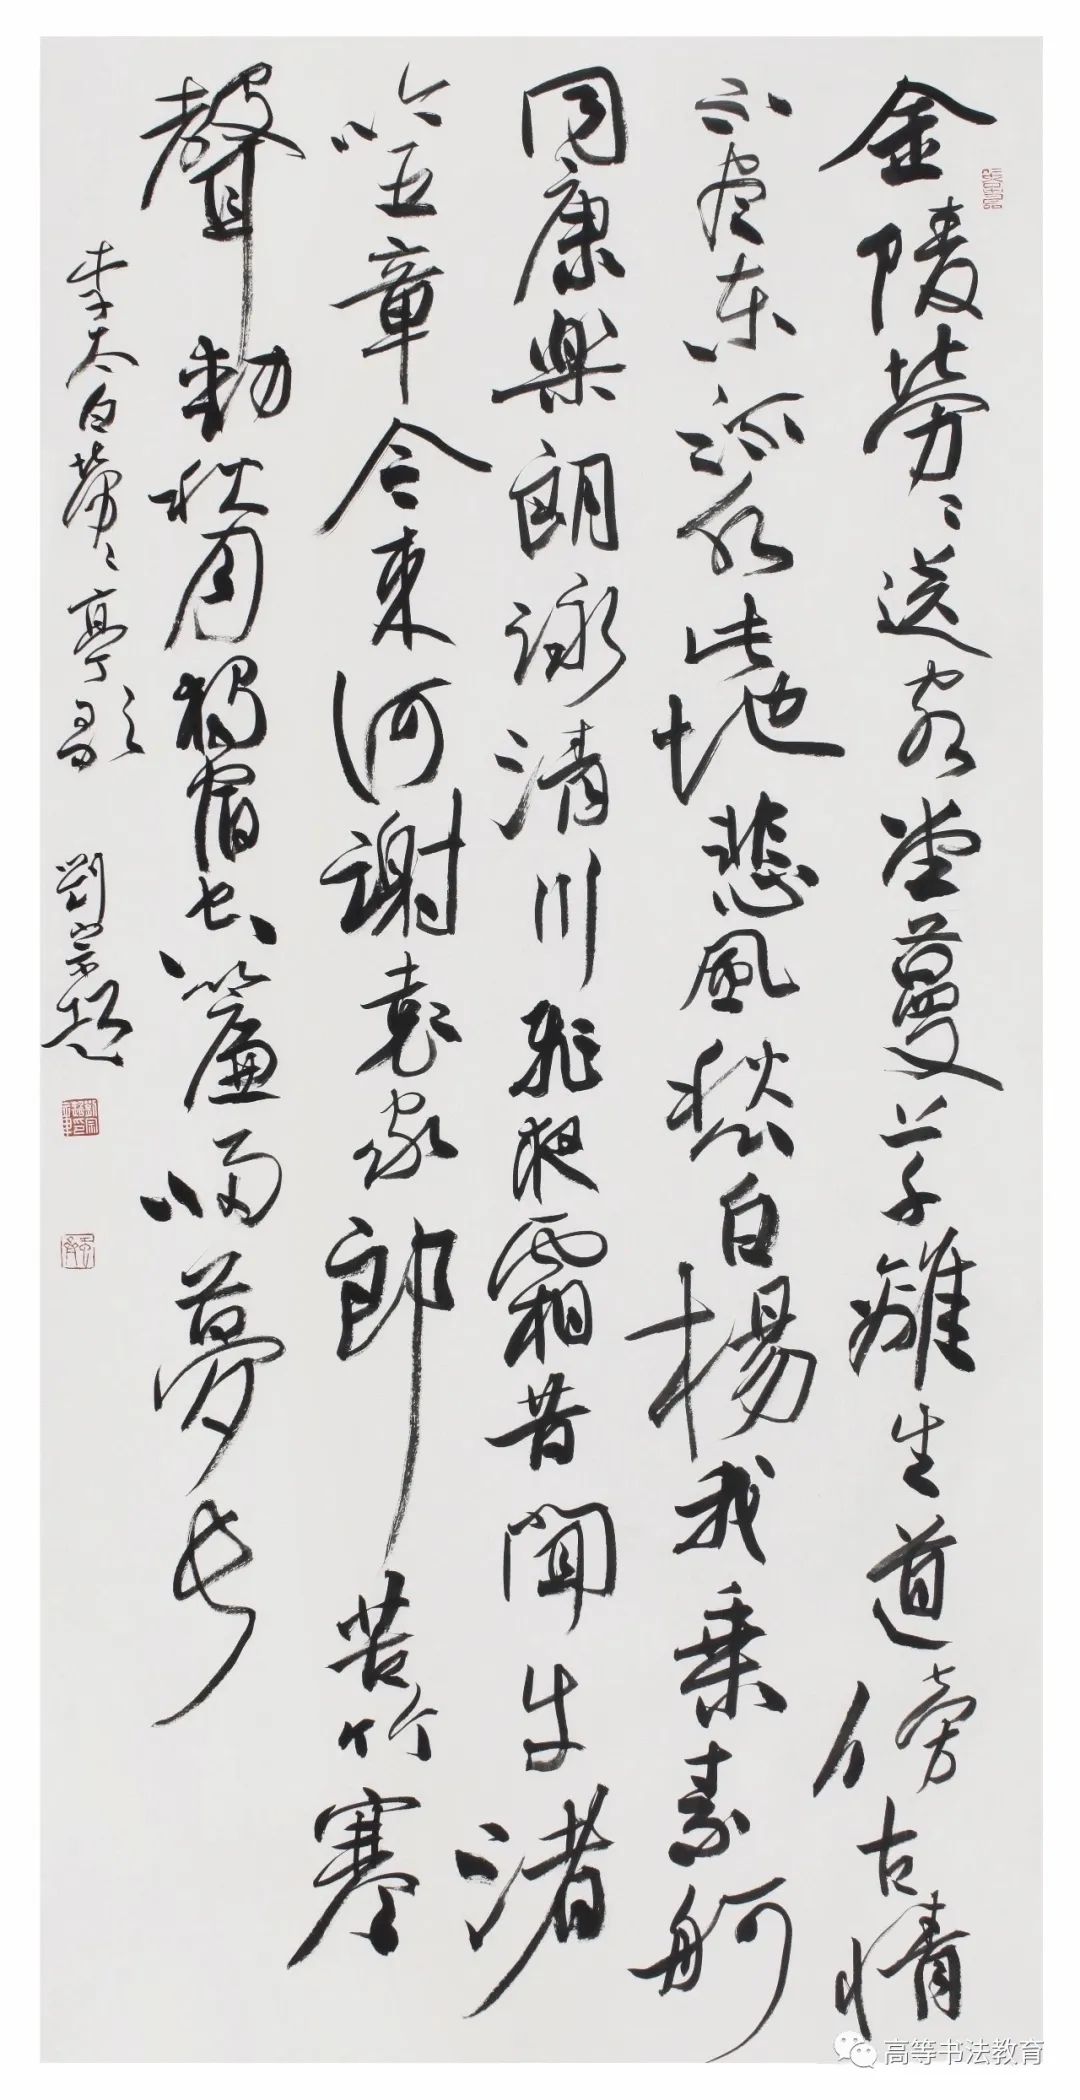 金陵勞〻送客堂蔓草離生道傍古情
不盡東流水此地悲風愁白楊我乘素舸
同康樂朗詠清川飛夜霜昔聞牛渚
吟五章今來何謝袁家郎苦竹寒
聲動秋月獨宿空簾歸夢長
李太白勞〻亭歌 劉宗超
高等书法教育